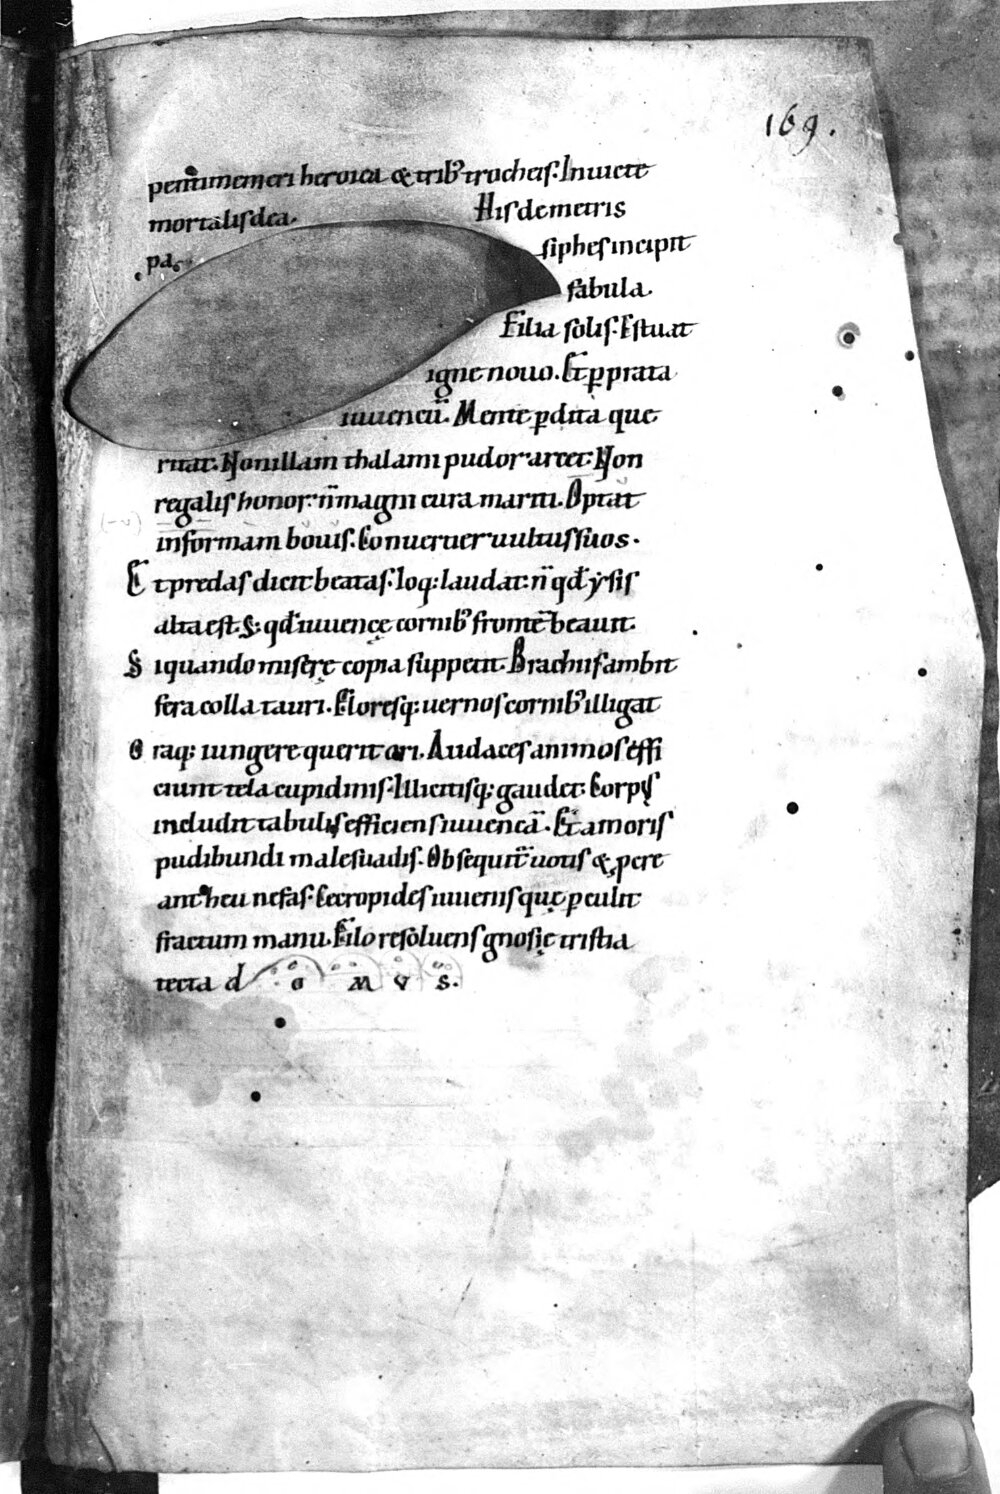 169.
pentimemeri heroica & trib᾿ trocheis. Inuicte
mortalis dea. His demetris
pa siphes incipit
fabula.
Filia solis. Estuat
igne nouo. Et p prata
iuuencū. Mente pdita que
ritat. Non illam thalami pudor arcet. Non
regalis honor. n̄ magni cura mariti. Optat
in formam bouis. Conuertier uultus suos.
Et predas dicit beatas. loq; laudat. n̄ qđ ysis
alta est. S; qđ iuuencę cornib᾿ frontē beauit.
Siquando miserę copia suppetit. Brachiis ambit
fera colla tauri. Floresq; uernos cornib᾿ illigat
Oraq; iungere querit ori. Audaces animos effi
ciunt tela cupidinis. Illicitisq; gaudet. Corpꝰ
includit tabulis efficiens iuuencā. Et amoris
pudibundi malesuadis. Obsequit᾿ uotis & pcre
at᾿ heu nefas. Cecropides iuuenis quę pculit
fractum manu. Filo resoluens gnosię tristia
tecta d o m v s.